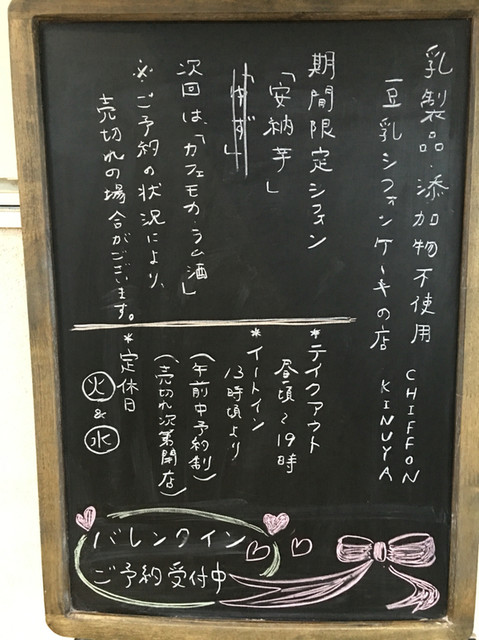 乳製品・添加物不使用
豆乳シフォンケーキの店
CHIFFON
KINUYA
期間限定シフォン
「安納芋」
「ゆず」
次回は、「カフェモカラム酒」
※ご予約の状況により、
売切れの場合がございます。
*テイクアウト
昼頃~19時
*イートイン
13時頃より
(午前中予約制)
(売切れ次第閉店)
*定休日
火&水
バレンタイン
ご予約受付中